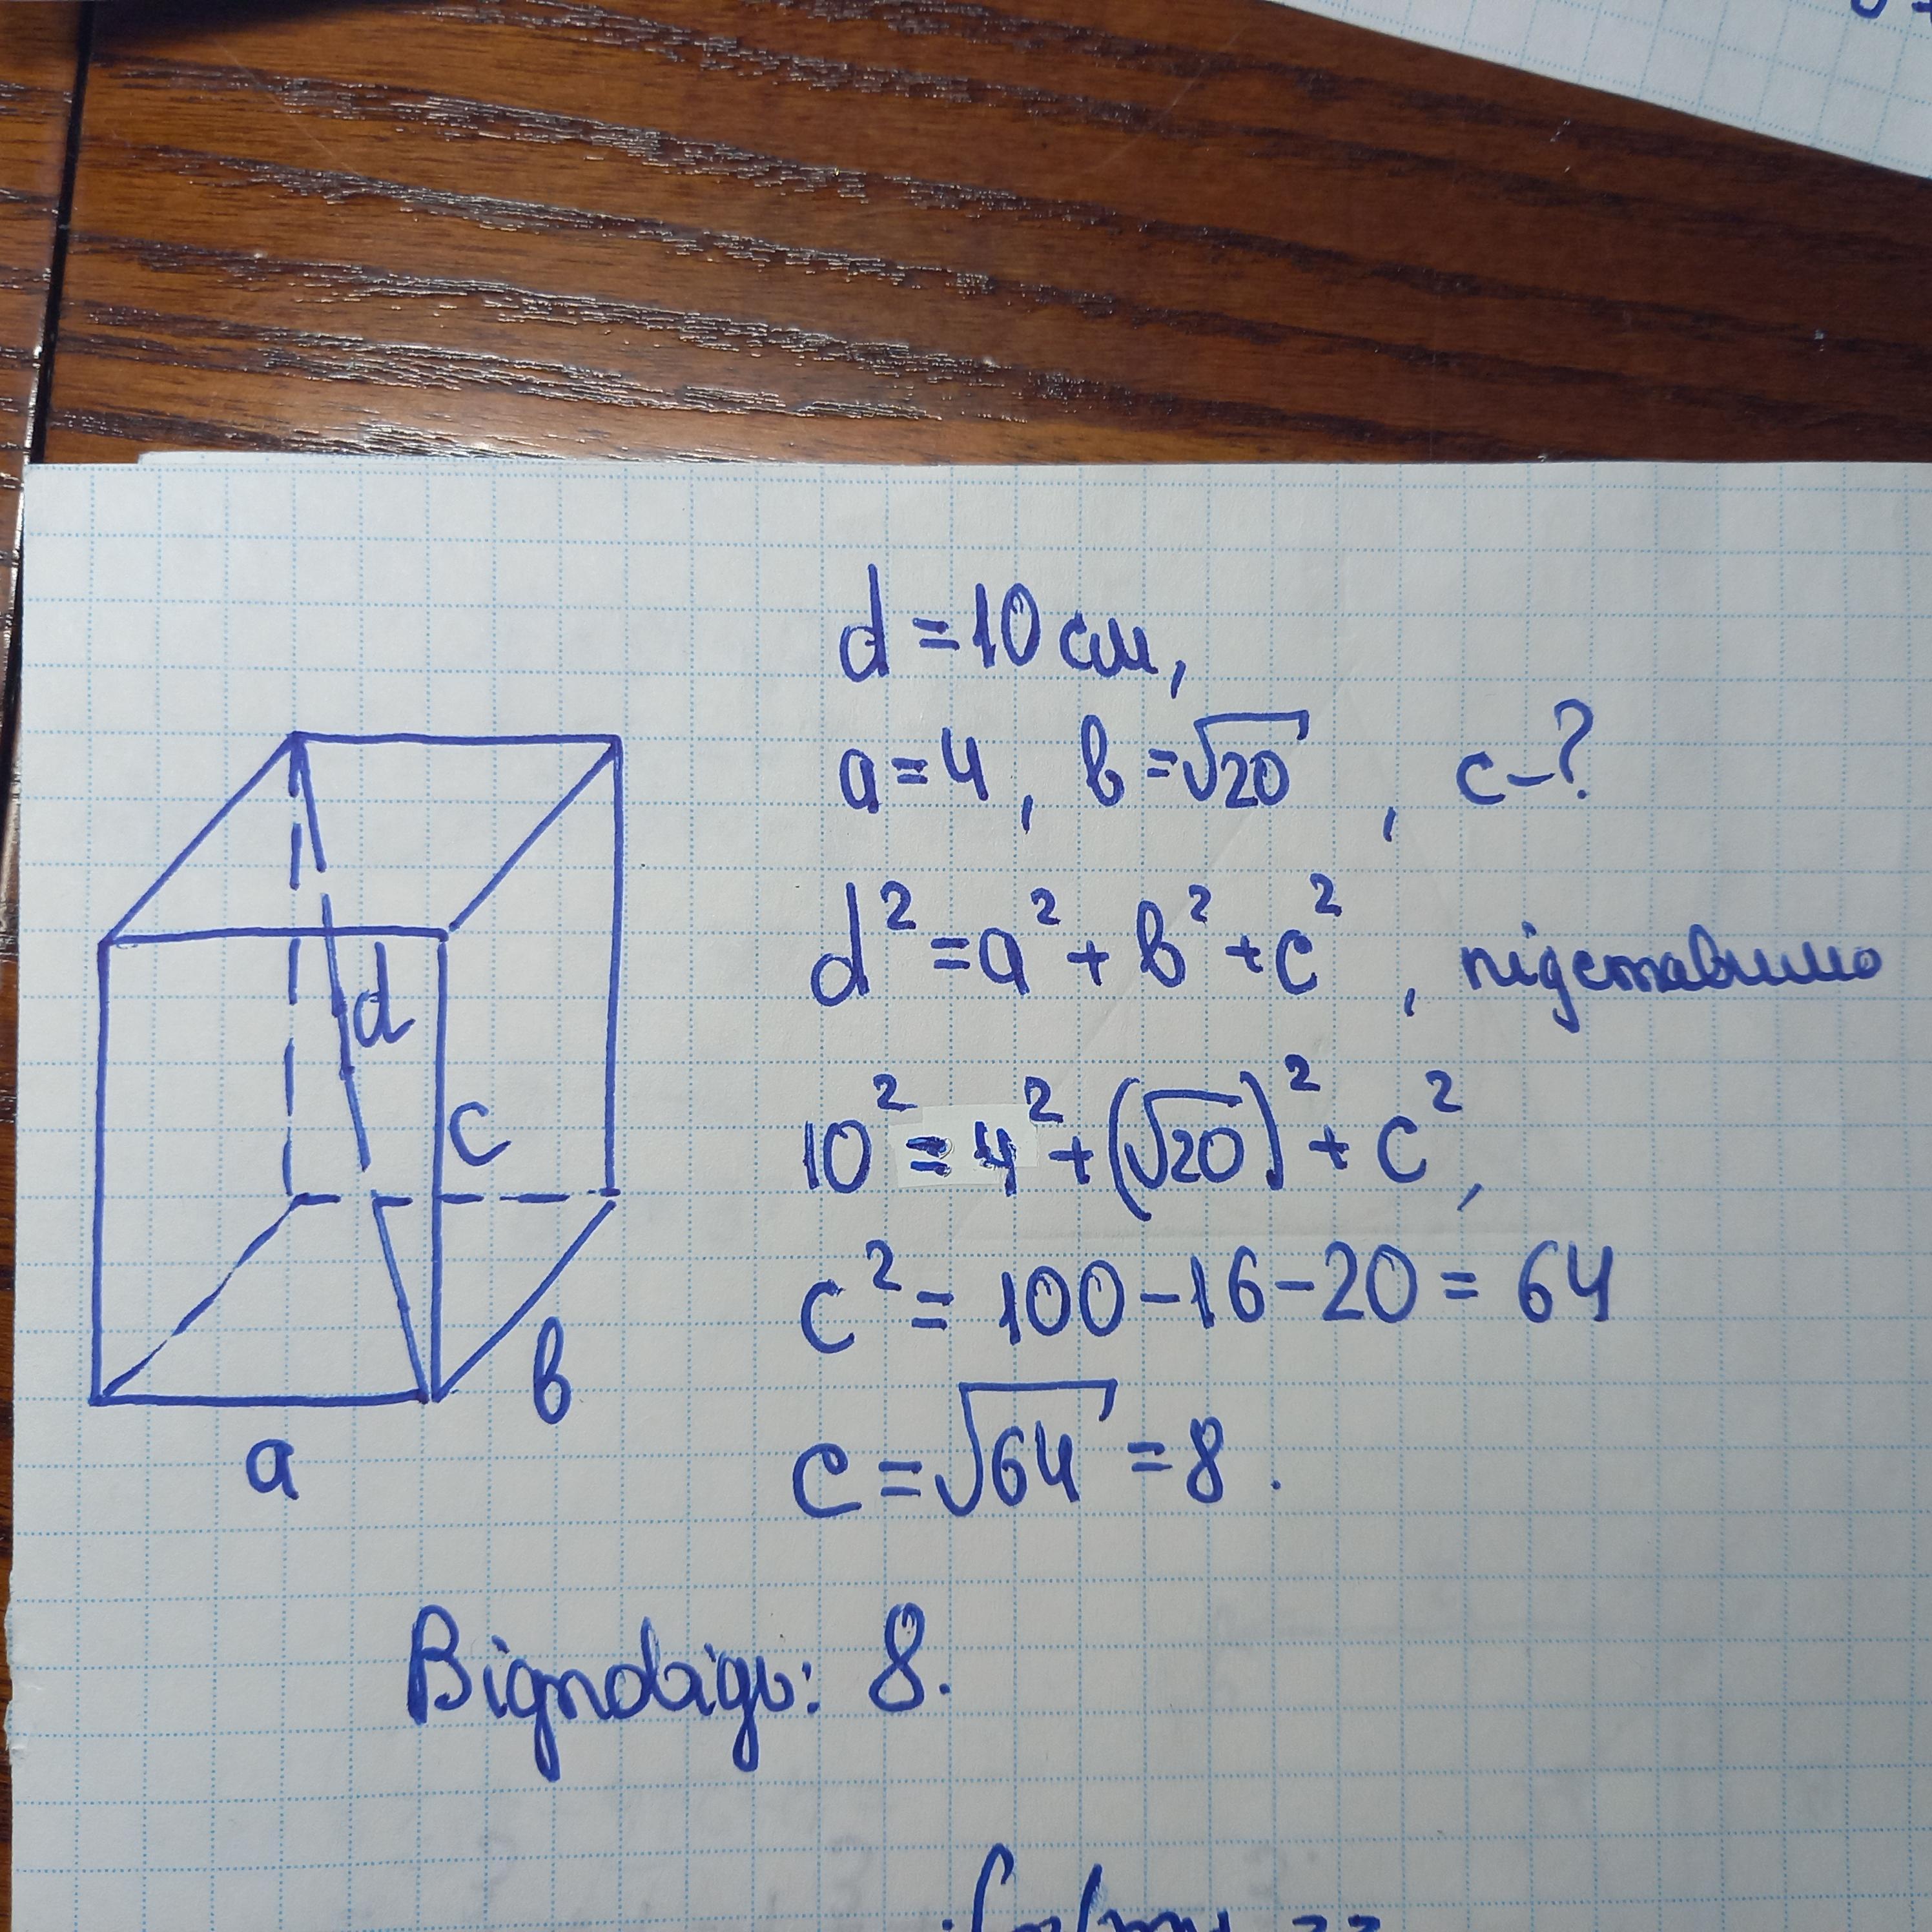 d = 10 см,
a = 4, b = √20, c - ?
d² = a² + b² + c², підставимо
10² = 4² + (√20)² + c²,
c² = 100 - 16 - 20 = 64
c = √64 = 8.
d
c
b
a
Відповідь: 8.